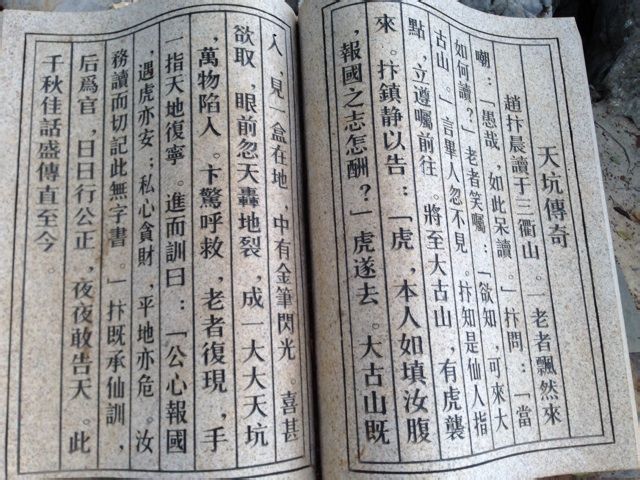 天坑傳奇
趙抃晨讀于三衢山。一老者飄然來
嘲：「愚哉，如此呆讀。」抃問：「當
如何讀？」老者笑囑：「欲知，可來大
古山。」言畢人忽不見。抃知是仙人指
點，立遵囑前往　將至大古山，有虎襲
來。抃鎮静以告：「虎，本人如填汝腹
，報國之志怎酬？」虎遂去。大古山既
入，見一盒在地，中有金筆閃光。喜甚
欲取，眼前忽天轟地裂，成一大大天坑
，萬物陷入。卞驚呼救，老者復現，手
一指天地復寧。進而訓曰：「公心報國
，遇虎亦安；私心貪財，平地亦危。汝
務讀而切記此無字書。」抃既承仙訓，
后爲官　日日行公正，夜夜敢告天。此
千秋佳話盛傳直至今。